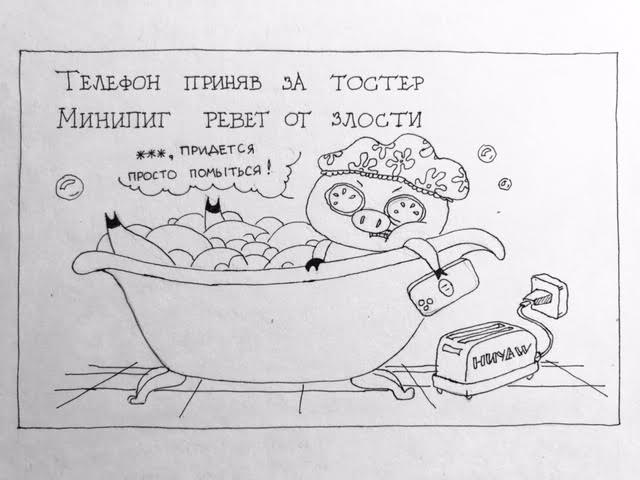 Телефон приняв за тостер
Минипиг ревет от злости
***, придется
просто помыться!